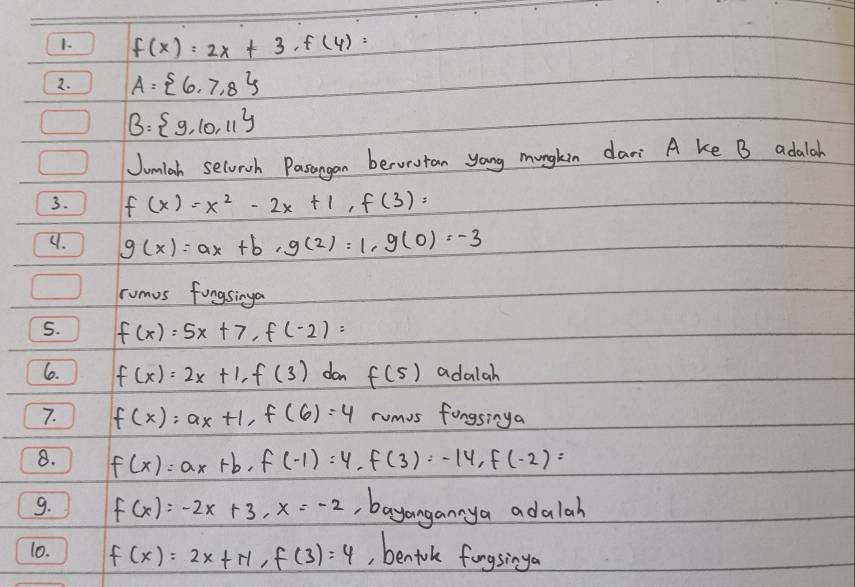 1. f(x) = 2x + 3, f(4) =
2. A = {6, 7, 8}
B = {9, 10, 11}
Jumlah seluruh Pasangan berurutan yang mungkin dari A ke B adalah
3. f(x) = x² - 2x + 1, f(3) =
4. g(x) = ax + b, g(2) = 1, g(0) = -3
rumus fungsinya
5. f(x) = 5x + 7, f(-2) =
6. f(x) = 2x + 1, f(3) dan f(5) adalah
7. f(x) = ax + 1, f(6) = 4 rumus fungsinya
8. f(x) = ax + b, f(-1) = 4, f(3) = -14, f(-2) =
9. f(x) = -2x + 3, x = -2, bayangannya adalah
10. f(x) = 2x + n, f(3) = 4, bentuk fungsinya